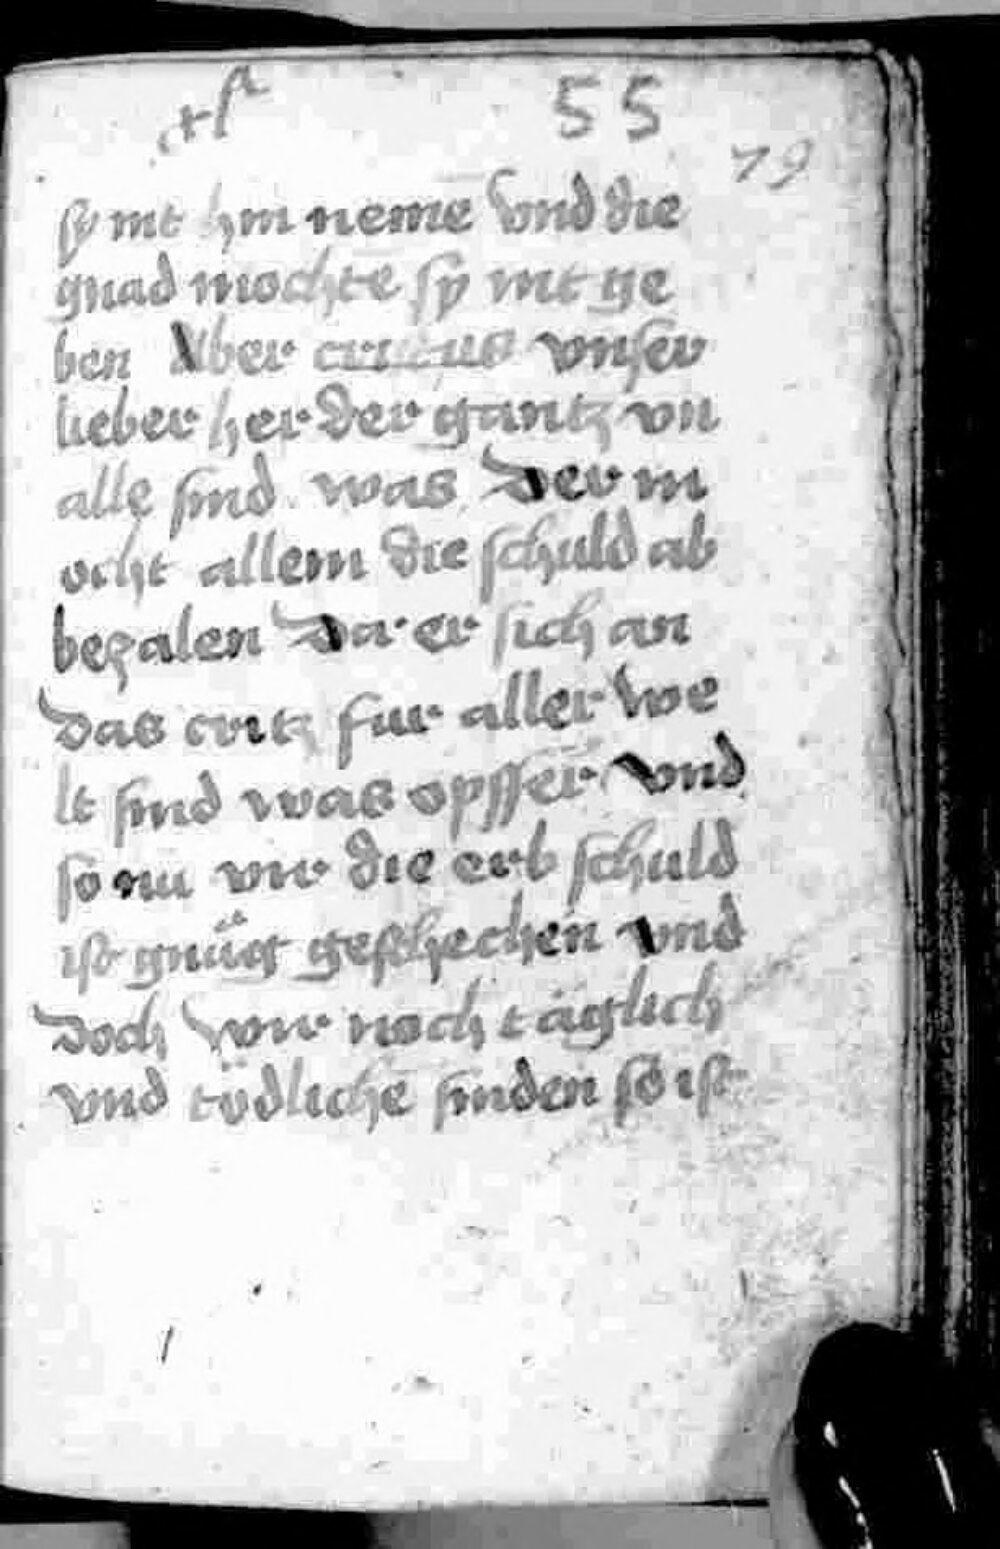 55
79
sy nit hin neme vnd die
gnad mochte sy nit ge
ben Aber cristus vnser
lieber her der gantz vn
alle sind was Der m
ocht allein die schuld ab
bezalen Da er sich an
das crütz fur aller we
lt sind was opffer vnd
so nu vir die erb schuld
ist gnüg geschechen vnd
doch wir noch täglich
vnd tödliche sinden so ist